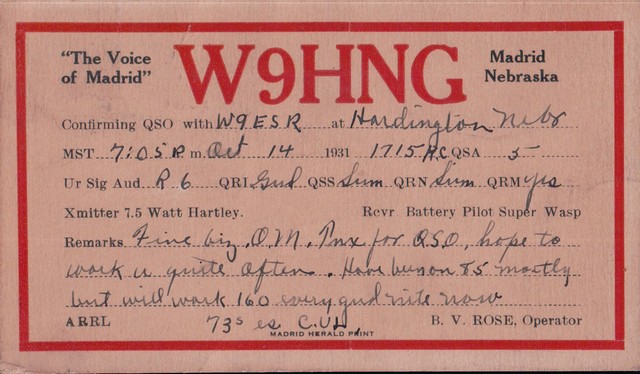 "The Voice of Madrid"
W9HNG
Madrid Nebraska
Confirming QSO with W9ESR at Hardington Nebr
MST 7:05 P m. Oct 14 1931 1715 KC QSA 5
Ur Sig Aud R 6 QRI Gud QSS Sum QRN Sum QRM yes
Xmitter 7.5 Watt Hartley. Rcvr Battery Pilot Super Wasp
Remarks Fine biz, O.M. Tnx for QSO, hope to
work u quite often. Have been on 85 mostly
but will work 160 every gud nite now
ARRL 73s es C.U.L. B. V. ROSE, Operator
MADRID HERALD PRINT